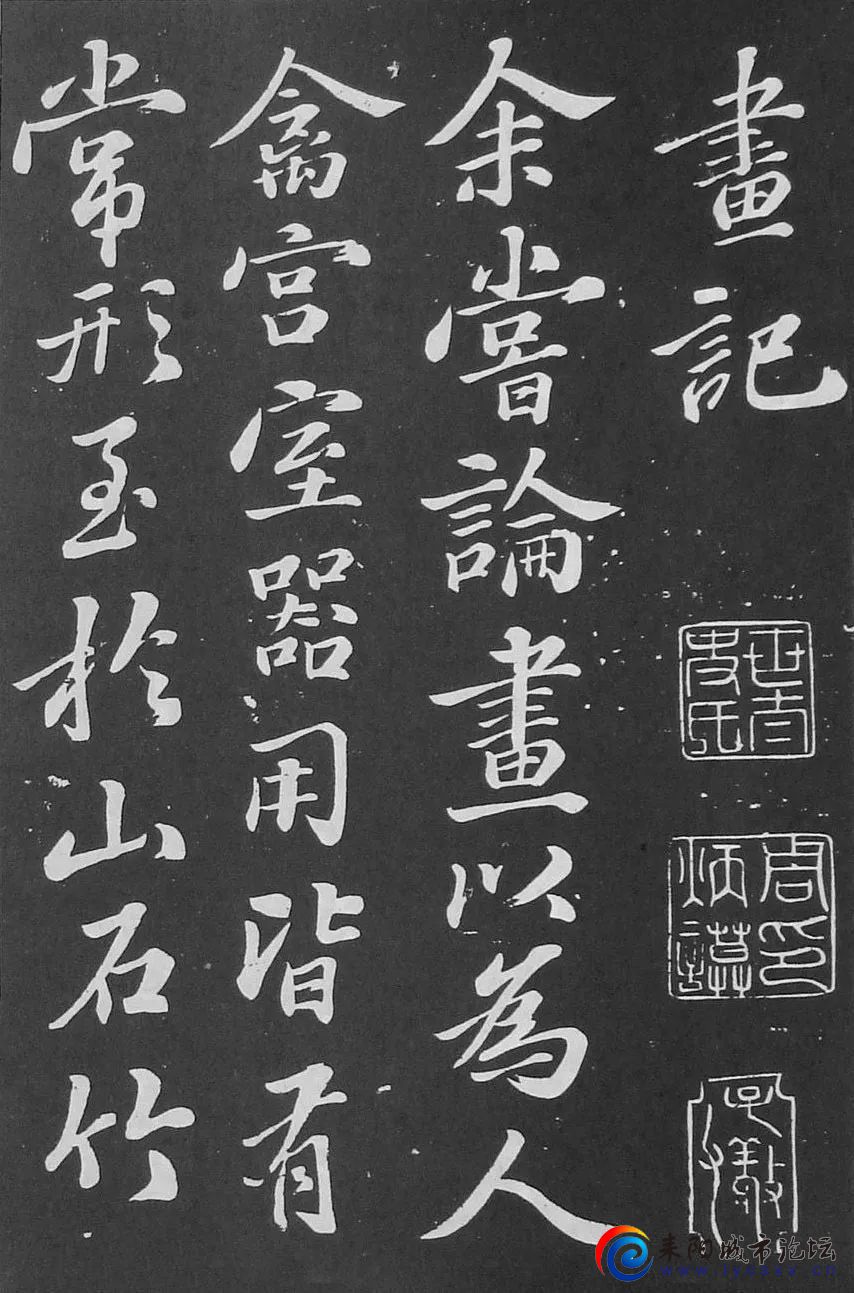 畫記
周印炳謨
余嘗論畫以為人
禽宮室器用皆有
常形至於山石竹
耒阳城市论坛